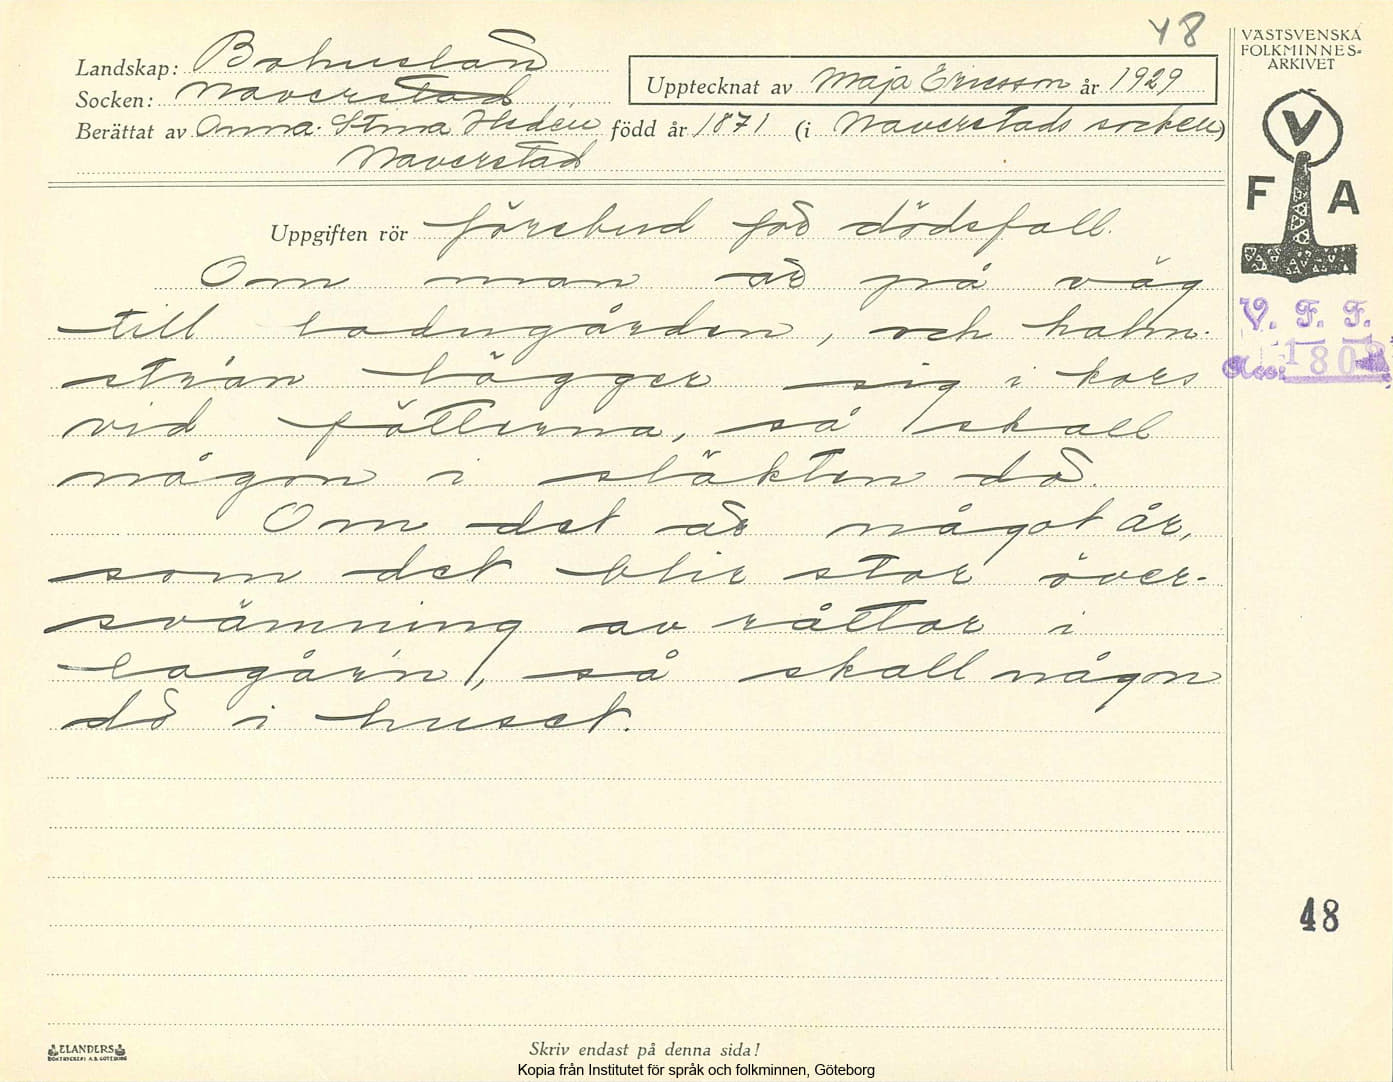 48
VÄSTSVENSKA
FOLKMINNES-
ARKIVET
Landskap: Bohuslän
Socken: Naverstad
Upptecknat av Maja Ericsson år 1929
Berättat av Anna-Stina Hedén född år 1871 (i Naverstads socken)
Naverstad
V
F A
Uppgiften rör förebud för dödsfall.
Om man är på väg
till ladugården, och halm-
strån lägger sig i kors
vid fötterna, så skall
någon i släkten dö.
Om det är något år,
som det blir stor över-
svämning av råttor i
lagår'n, så skall någon
dö i huset.
V. F. F.
Acc: 180
48
ELANDERS
BOKTRYCKERI A.B. GÖTEBORG
Skriv endast på denna sida!
Kopia från Institutet för språk och folkminnen, Göteborg